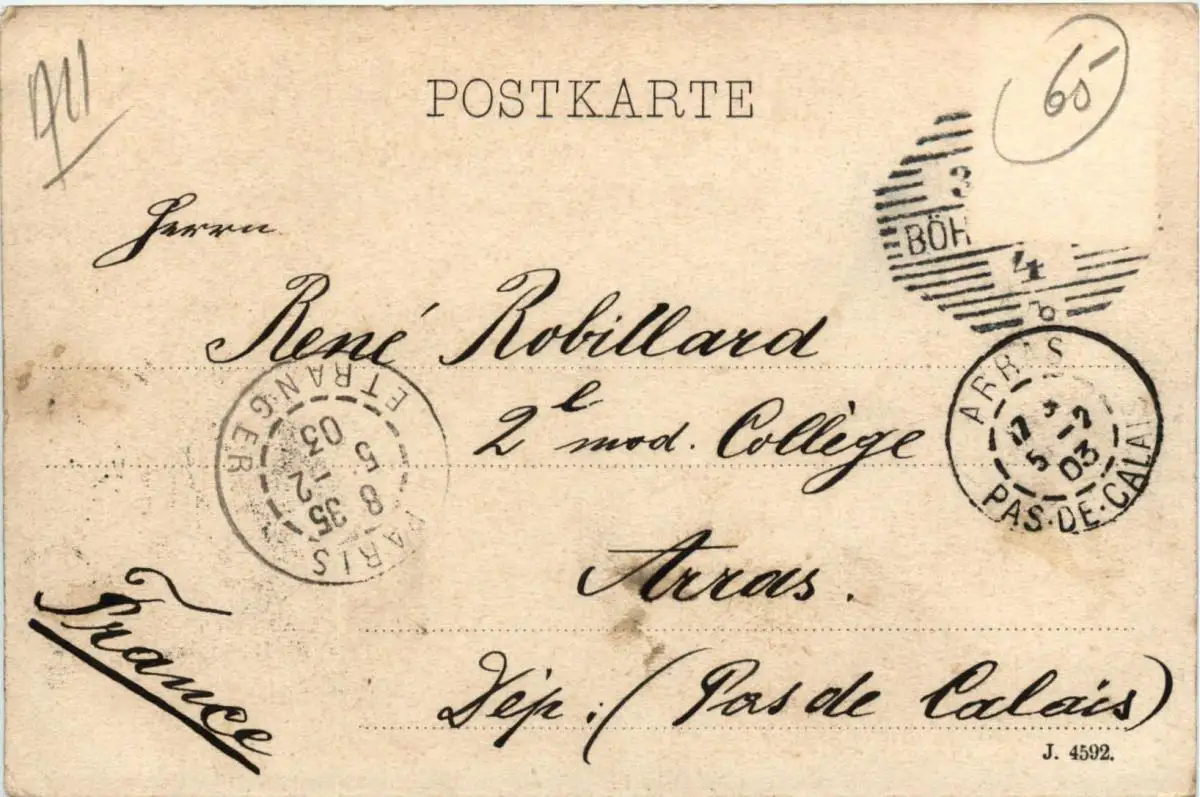 POSTKARTE
65
BÖH
4
Herrn
René Robillard
2e mod. Collège
Arras.
Dép: (Pas de Calais)
France
ARRAS
12
5 03
PAS-DE-CALAIS
PARIS
8 35
5
03
ETRANGER
J. 4592.